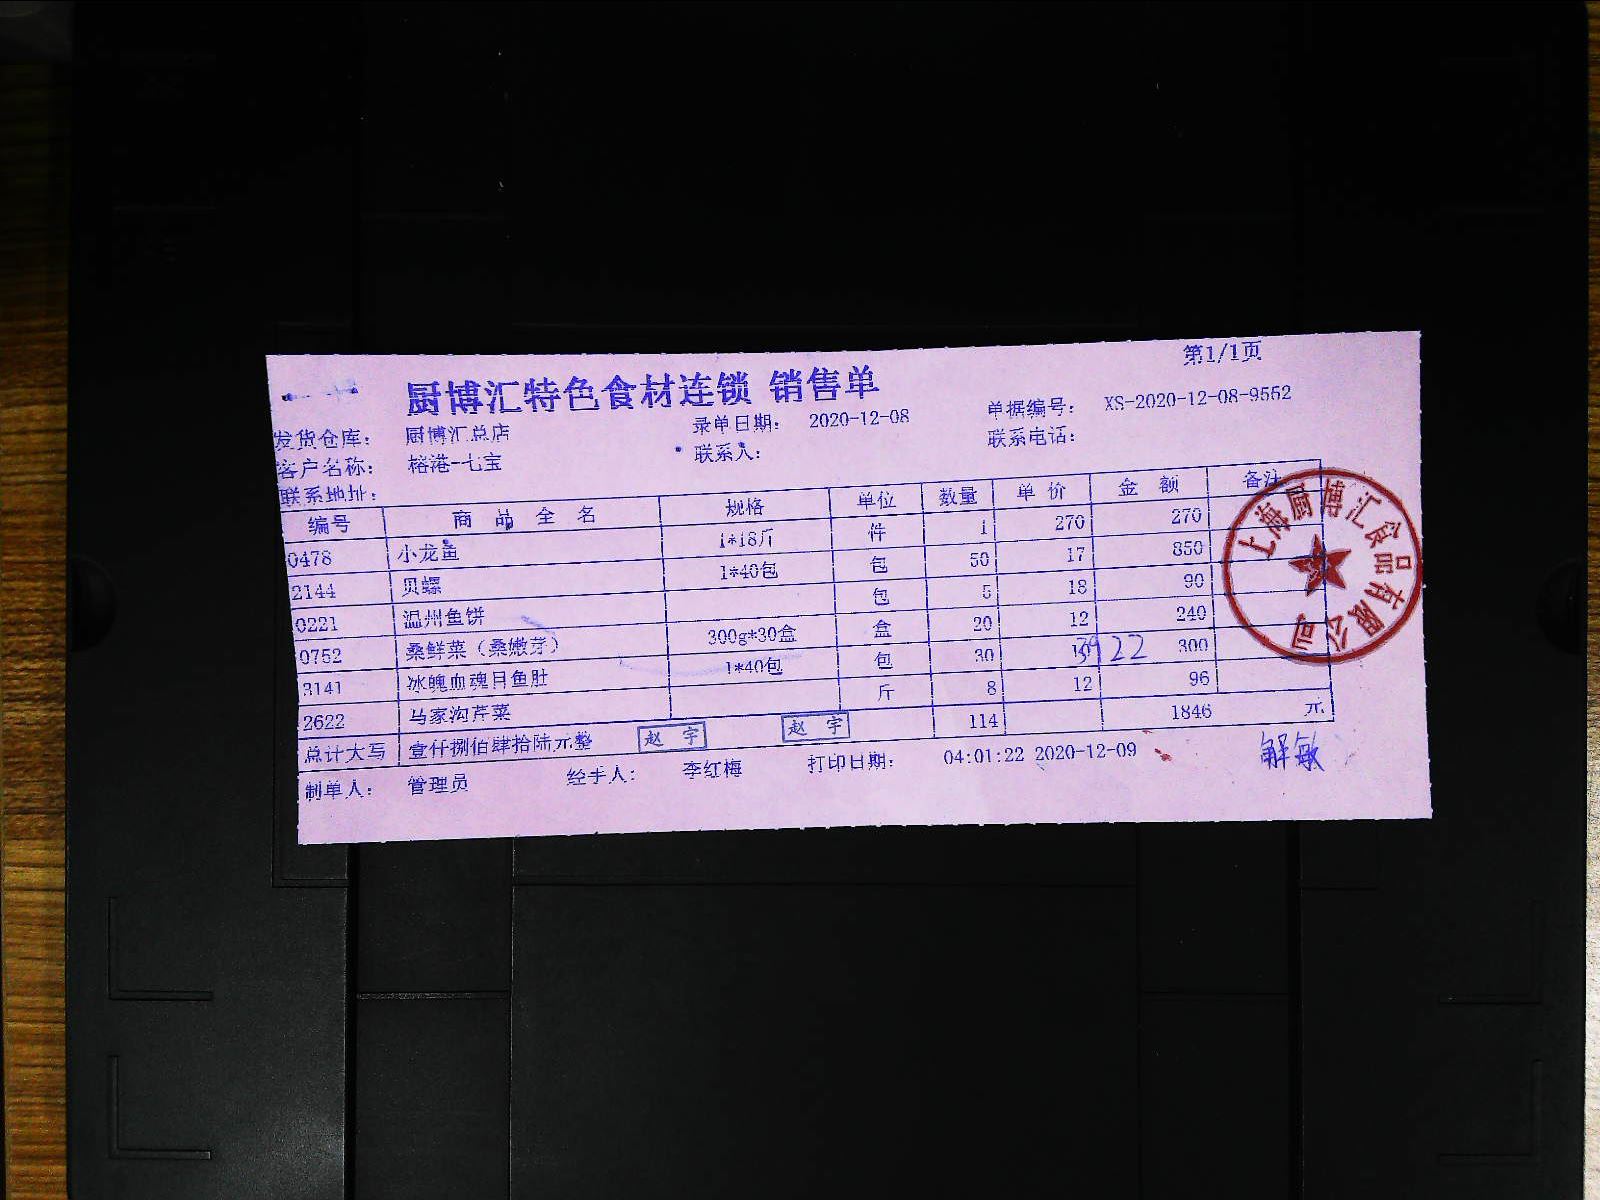 第1/1页
厨博汇特色食材连锁 销售单
发货仓库： 厨博汇总店 录单日期： 2020-12-08 单据编号： XS-2020-12-08-9552
客户名称： 榕港-七宝 联系人： 联系电话：
联系地址：
编号 商品全名 规格 单位 数量 单价 金额 备注
0478 小龙鱼 1*18斤 件 1 270 270
2144 贝螺 1*40包 包 50 17 850
0221 温州鱼饼 包 5 18 90
0752 桑鲜菜（桑嫩芽） 300g*30盒 盒 20 12 240
3141 冰魄血魂目鱼肚 1*40包 包 30 3922 300
2622 马家沟芹菜 斤 8 12 96
总计大写 壹仟捌佰肆拾陆元整 赵宇 赵宇 114 1846 元
制单人： 管理员 经手人： 李红梅 打印日期： 04:01:22 2020-12-09 解敏
上海厨博汇食品有限公司